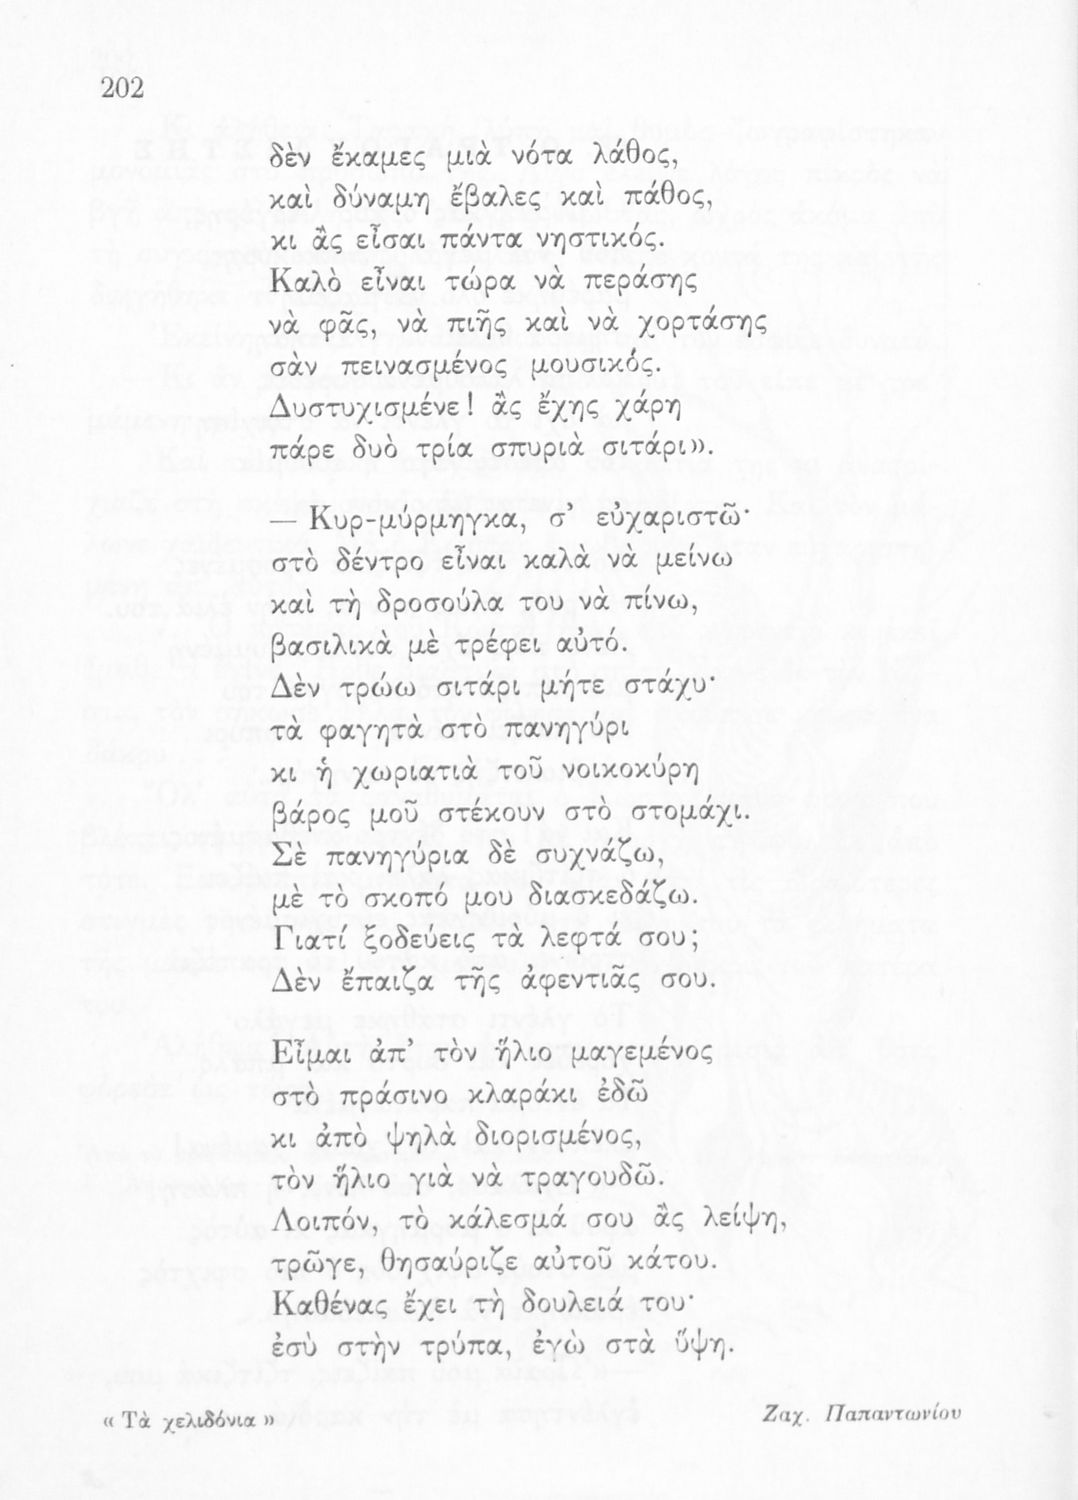 202
δὲν ἔκαμες μιὰ νότα λάθος,
καὶ δύναμη ἔβαλες καὶ πάθος,
κι ἂς εἶσαι πάντα νηστικός.
Καλὸ εἶναι τώρα νὰ περάσης
νὰ φᾶς, νὰ πιῆς καὶ νὰ χορτάσης
σὰν πεινασμένος μουσικός.
Δυστυχισμένε! ἂς ἔχης χάρη
πάρε δυὸ τρία σπυριὰ σιτάρι».
— Κυρ-μύρμηγκα, σ’ εὐχαριστῶ·
στὸ δέντρο εἶναι καλὰ νὰ μείνω
καὶ τὴ δροσούλα του νὰ πίνω,
βασιλικὰ μὲ τρέφει αὐτό.
Δὲν τρώω σιτάρι μήτε στάχυ·
τὰ φαγητὰ στὸ πανηγύρι
κι ἡ χωριατιὰ τοῦ νοικοκύρη
βάρος μοῦ στέκουν στὸ στομάχι.
Σὲ πανηγύρια δὲ συχνάζω,
μὲ τὸ σκοπό μου διασκεδάζω.
Γιατί ξοδεύεις τὰ λεφτά σου;
Δὲν ἔπαιζα τῆς ἀφεντιᾶς σου.
Εἶμαι ἀπ’ τὸν ἥλιο μαγεμένος
στὸ πράσινο κλαράκι ἐδῶ
κι ἀπὸ ψηλὰ διορισμένος,
τὸν ἥλιο γιὰ νὰ τραγουδῶ.
Λοιπόν, τὸ κάλεσμά σου ἂς λείψη,
τρῶγε, θησαύριζε αὐτοῦ κάτου.
Καθένας ἔχει τὴ δουλειά του·
ἐσὺ στὴν τρύπα, ἐγὼ στὰ ὕψη.
« Τὰ χελιδόνια » Ζαχ. Παπαντωνίου